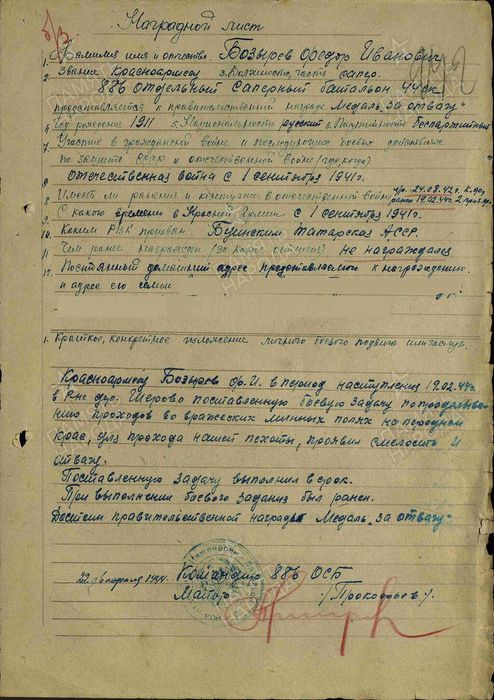 Наградной лист
1. Фамилия имя и отчество. Бозырев Федор Иванович
2. Звание Красноармеец 3. Должность, часть сапер.
886 отдельный Саперный батальон 44 ск
представляется к правительственной награде "Медаль за отвагу"
4. Год рождения 1911 5. Национальность русский 6. Партийность беспартийный
7. Участие в гражданской войне и последующих боевых действиях
по защите СССР и отечественной войне (где, когда)
Отечественная война с 1 сентября 1941 г.
8. Имеет ли ранения и контузии в отечественной войне 24.08.42 г.
ранен 19.02.44 г.
9. С какого времени в Красной Армии с 1 сентября 1941 г.
10. Каким РВК призван Буинским Татарская АССР.
11. Чем ранее награжден (за какие отличия) не награждался
12. Постоянный домашний адрес представляемого к награждению
и адрес его семьи
1. Краткое, конкретное изложение личного боевого подвига или заслуг.
Красноармеец Бозырев Ф. И. в период наступления 19.02.44 г.
в р-не дер. Шерово поставленную боевую задачу по проделыва-
нию проходов во вражеских минных полях на переднем
крае, для прохода нашей пехоты, проявил смелость и
отвагу.
Поставленную задачу выполнил в срок.
При выполнении боевого задания был ранен.
Достоин правительственной награды "Медаль за отвагу"
22 февраля 1944 г. Командир 886 ОСБ
Майор /Прокофьев/.